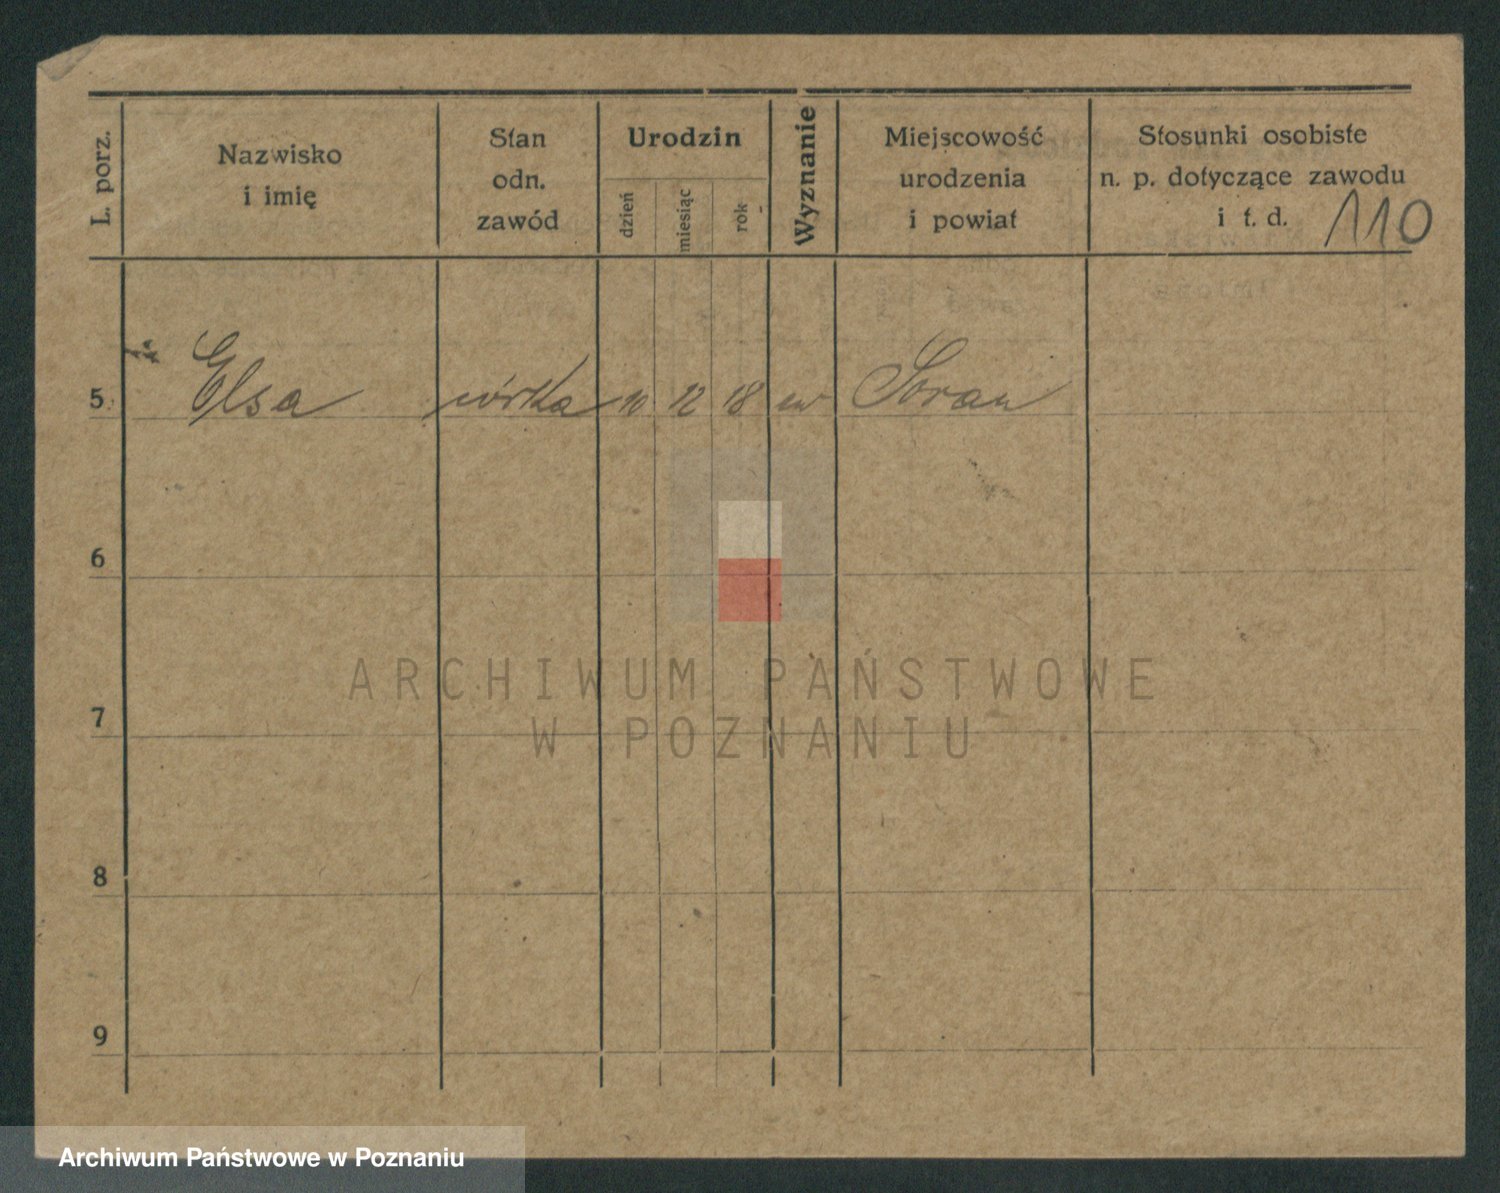 L. porz.
Nazwisko
i imię
Stan
odn.
zawód
Urodzin
dzień
miesiąc
rok
Wyznanie
Miejscowość
urodzenia
i powiat
Stosunki osobiste
n. p. dotyczące zawodu
i t. d.
110
5 Elsa córka 10 12 18 ew Sorau
6
7
8
9
ARCHIWUM PAŃSTWOWE
W POZNANIU
Archiwum Państwowe w Poznaniu